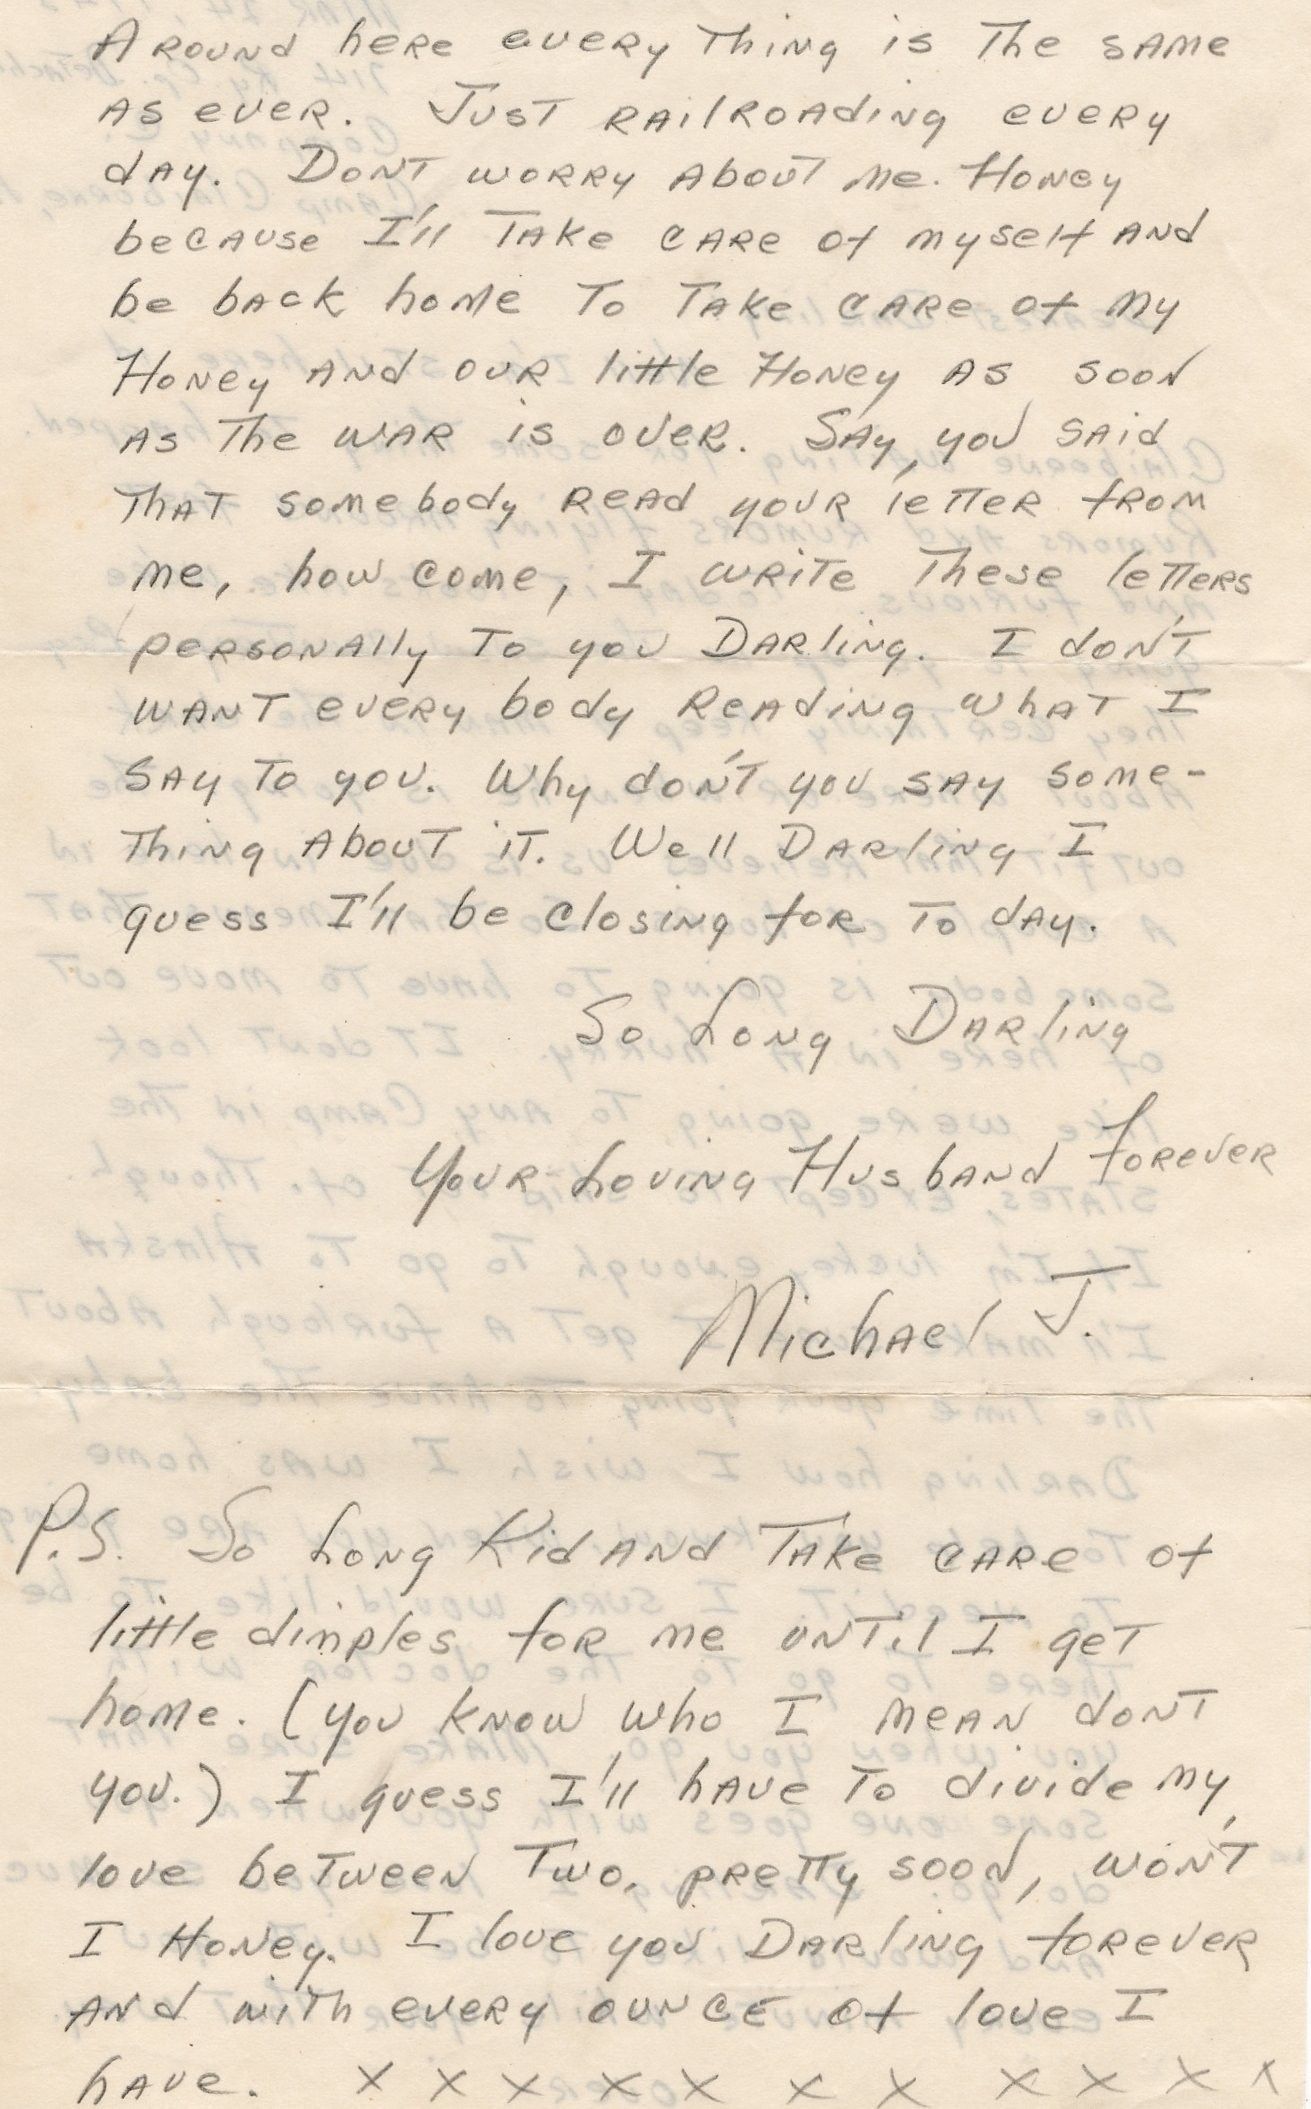 Around here every thing is the same
as ever. Just railroading every
day. Dont worry about me. Honey
because I'll take care of myself and
be back home to take care of my
Honey and our little Honey as soon
as the war is over. Say, you said
that somebody read your letter from
me, how come, I write these letters
personally to you Darling. I don't
want every body reading what I
say to you. Why don't you say some-
thing about it. Well Darling I
guess I'll be closing for to day.
So Long Darling
Your Loving Husband forever
Michael J.
P.S. So Long Kid and take care of
little dimples for me until I get
home. (you know who I mean dont
you.) I guess I'll have to divide my
love between two, pretty soon, won't
I Honey. I love you Darling forever
and with every ounce of love I
have. x x x x x x x x x x x